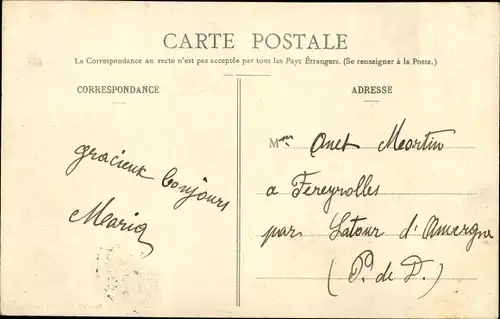 CARTE POSTALE
La Correspondance au recto n'est pas acceptée par tous les Pays Étrangers. (Se renseigner à la Poste.)
CORRESPONDANCE
ADRESSE
gracieux bonjours
Maria
Mme Anet Martin
a Fereyrolles
par Latour d'Auvergne
(P. de D.)